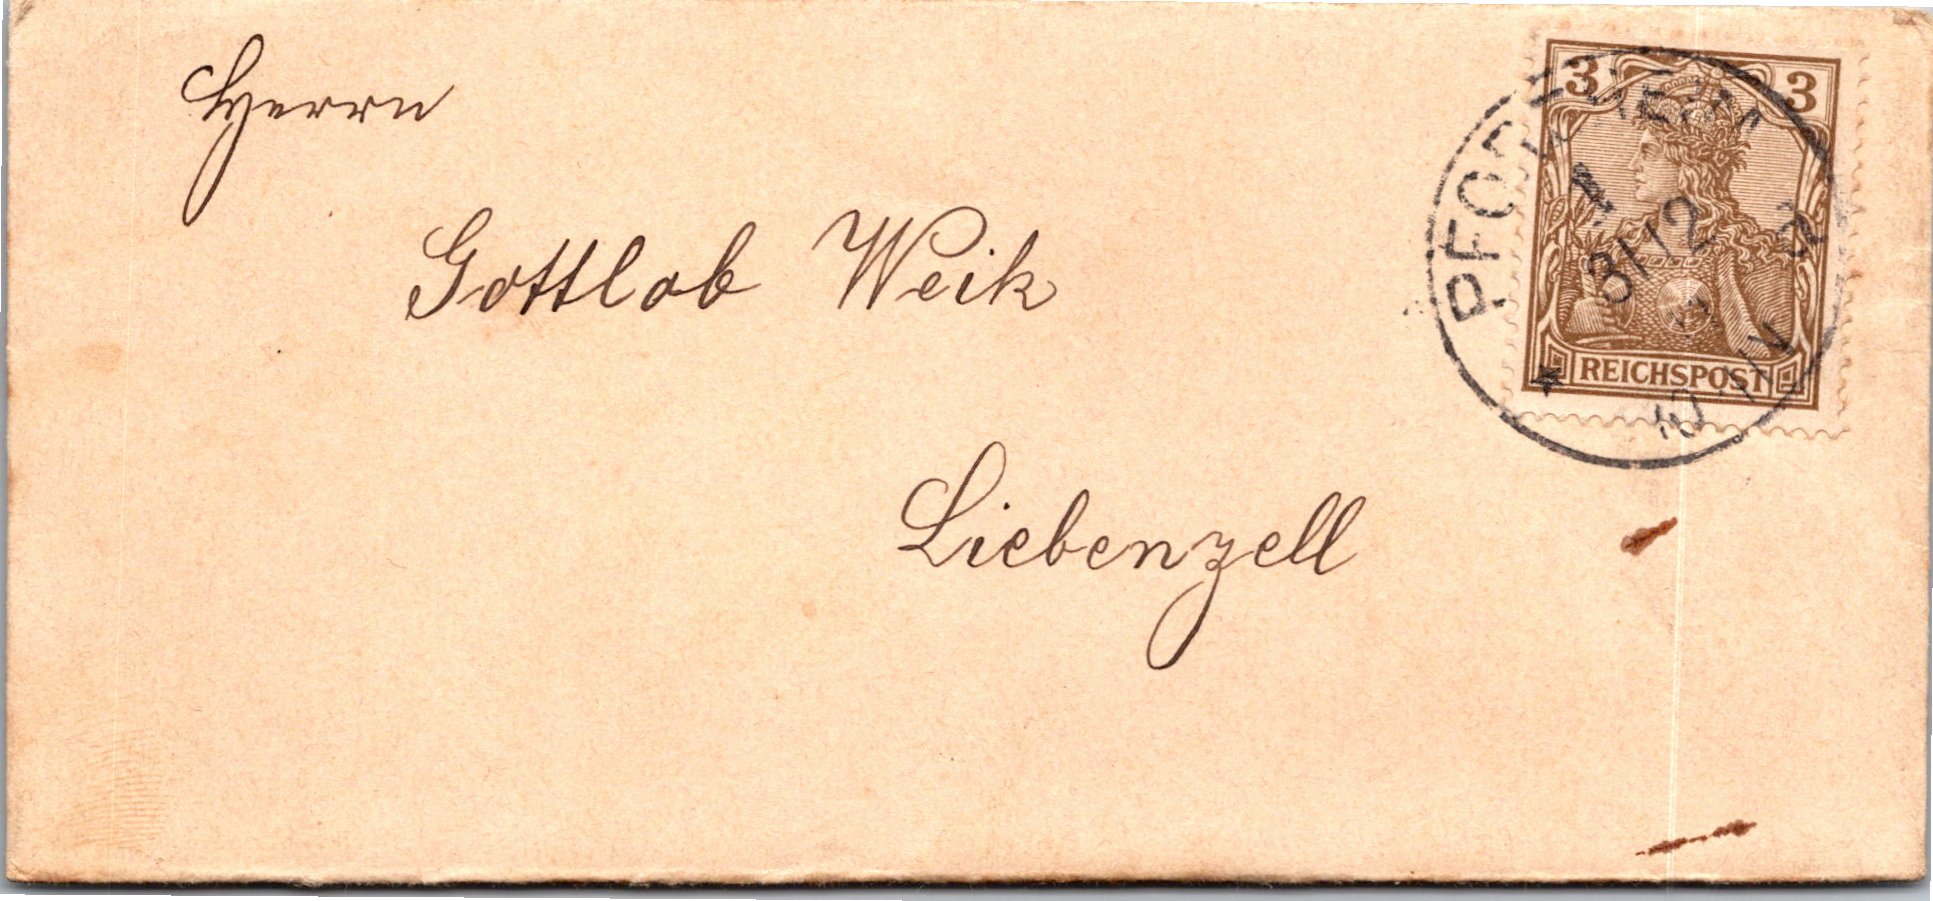 Herrn
Gottlob Weik
Liebenzell
3 3
REICHSPOST
PFORZHEIM
31 12